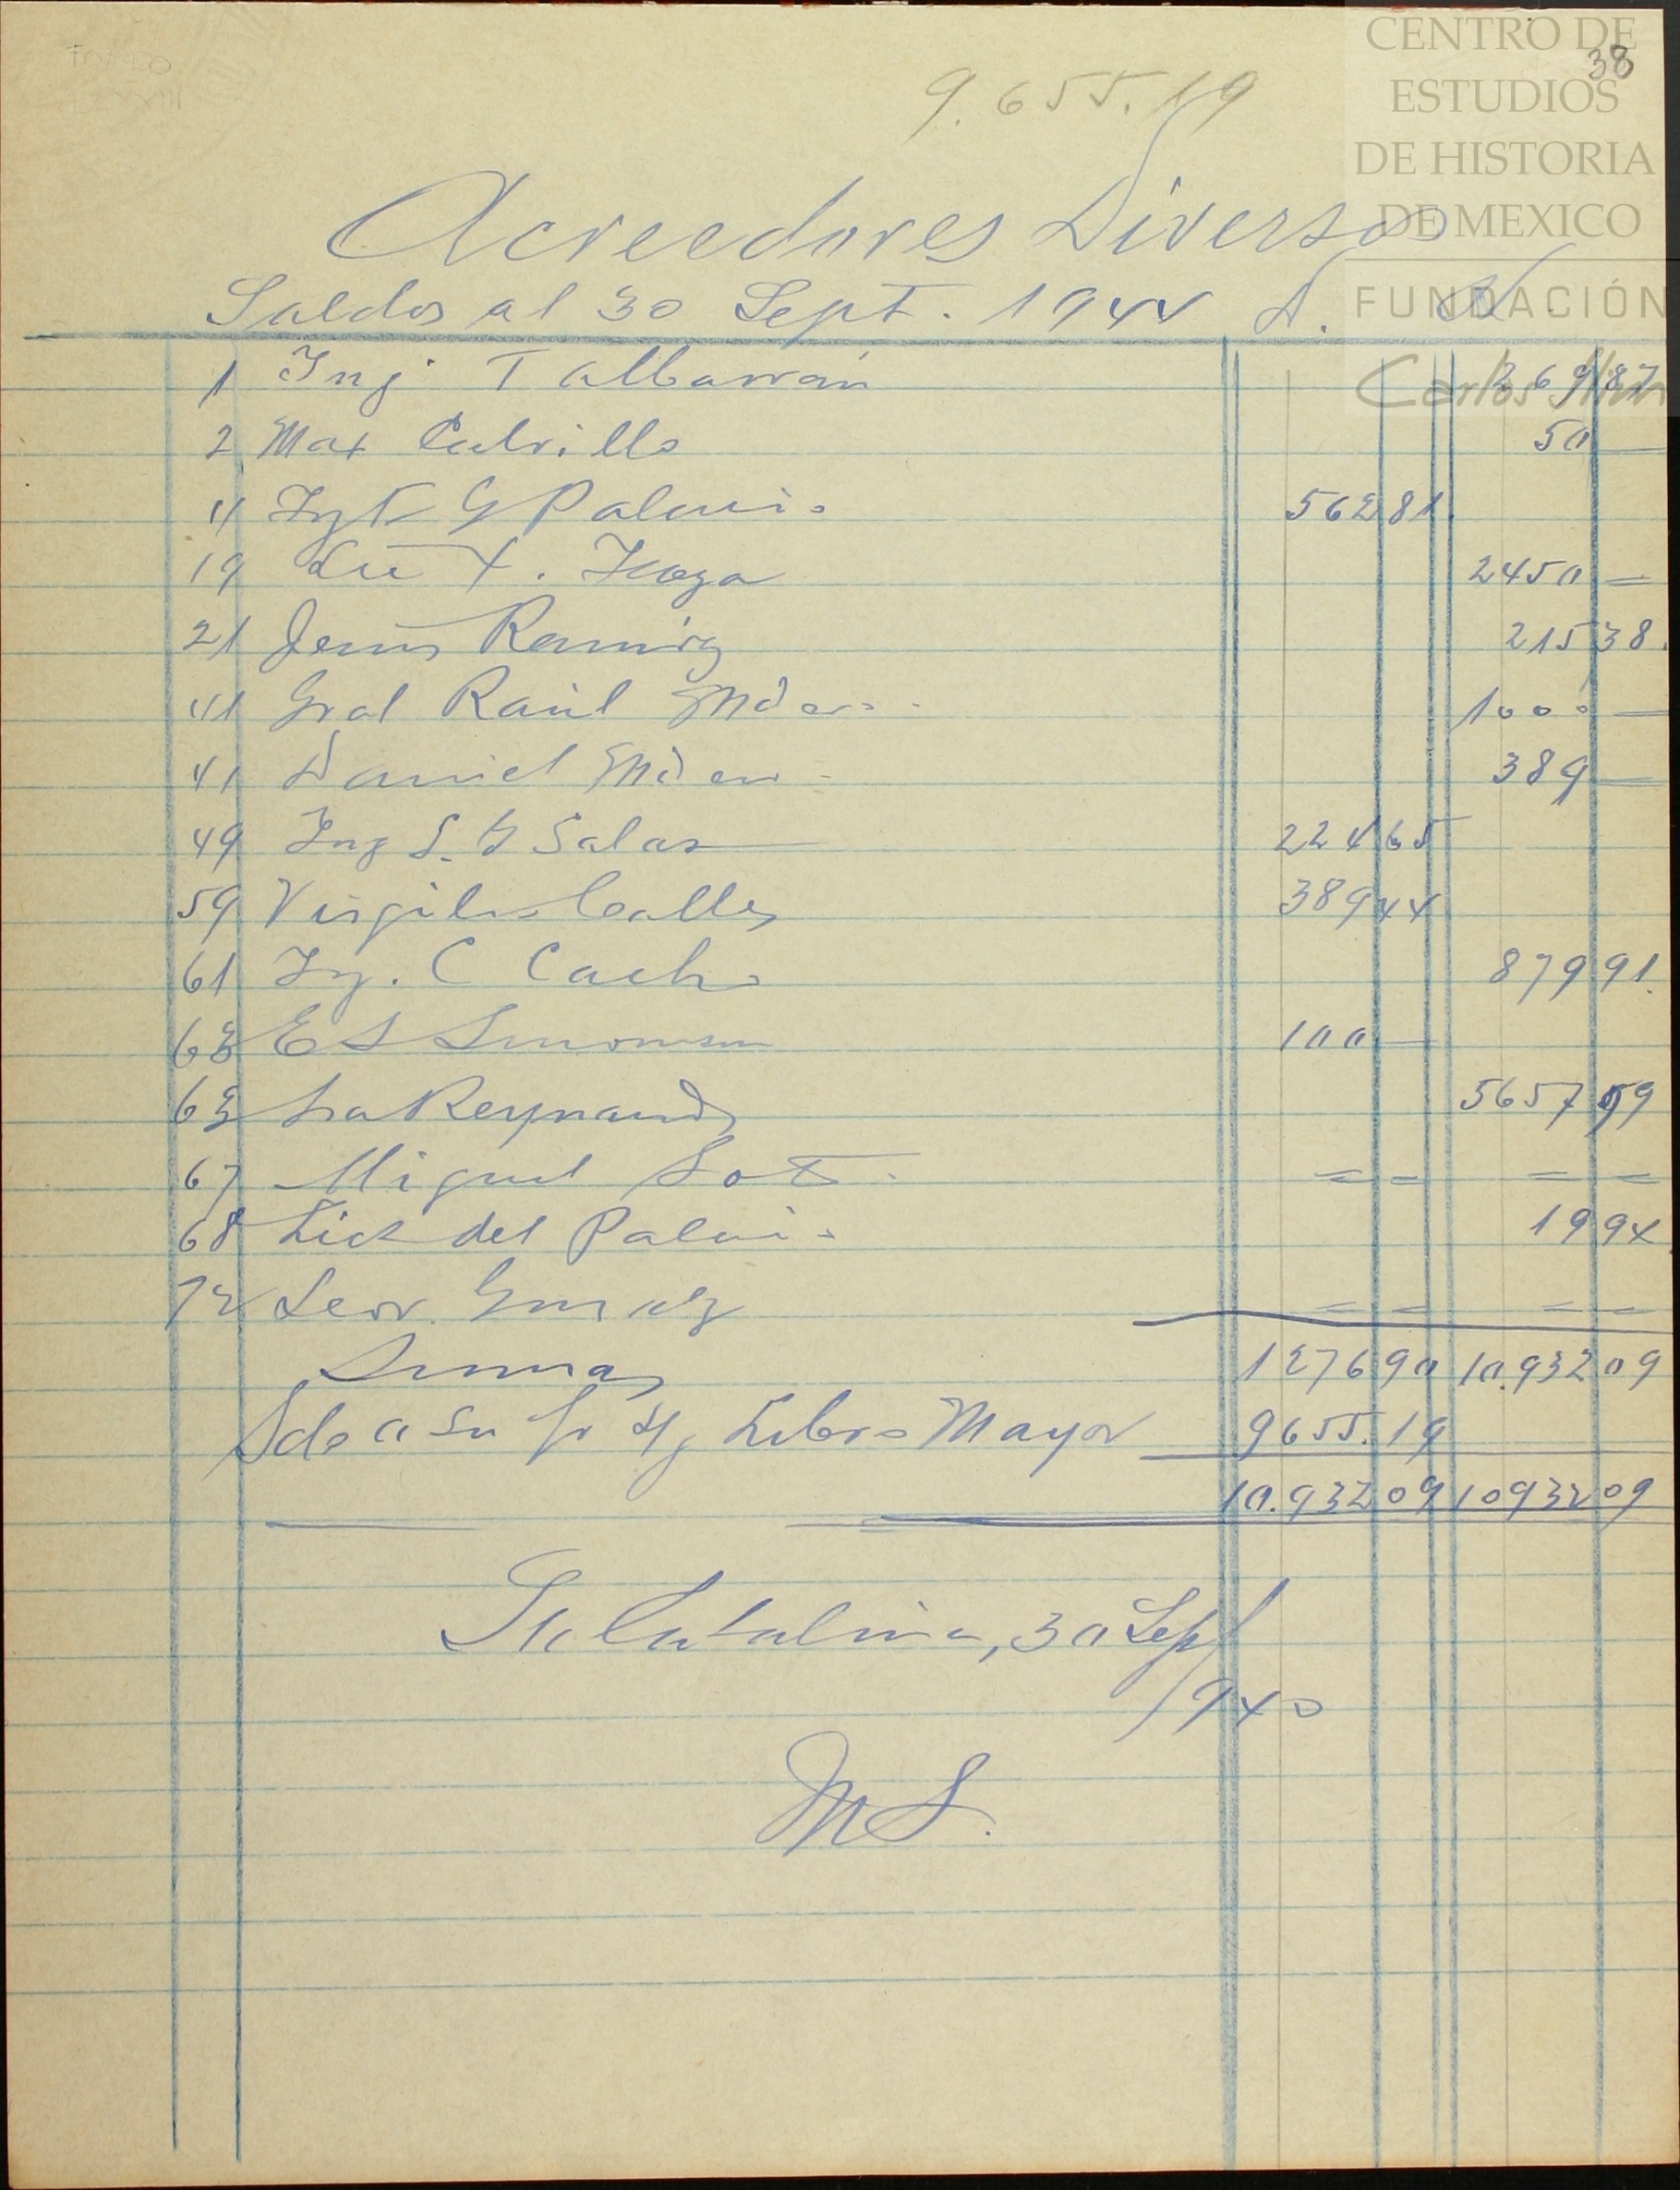 CENTRO DE
ESTUDIOS
DE HISTORIA
DE MEXICO
FUNDACIÓN
Carlos Slim
38
9.655.19
Acreedores Diversos
Saldos al 30 Sept. 1944 D. H
1 Ing. T Albarran 269 87
2 Max Calvillo 50 —
4 Ing G Palacio 562 81
19 Lic Icaza 2450 =
21 Jesus Ramirez 215 38
41 Gral Raul Madero 1000 —
41 Daniel Madero 389 —
49 Ing S. G Salas 224 65
59 Virgilio Calles 389 44
61 Ing. C Cacho 879 91
63 E S Simonson 100 —
63 Sra Reynaud 5657 99
67 Miguel Soto = = = =
68 Lic del Palacio 19 94
72 Leov. Gonzalez = = = =
Sumas 1276 90 10.932 09
Sdo a su Libro Mayor 9655.19
10.932 09 10932 09
Sta Catalina, 30 Sept
1940
MS.